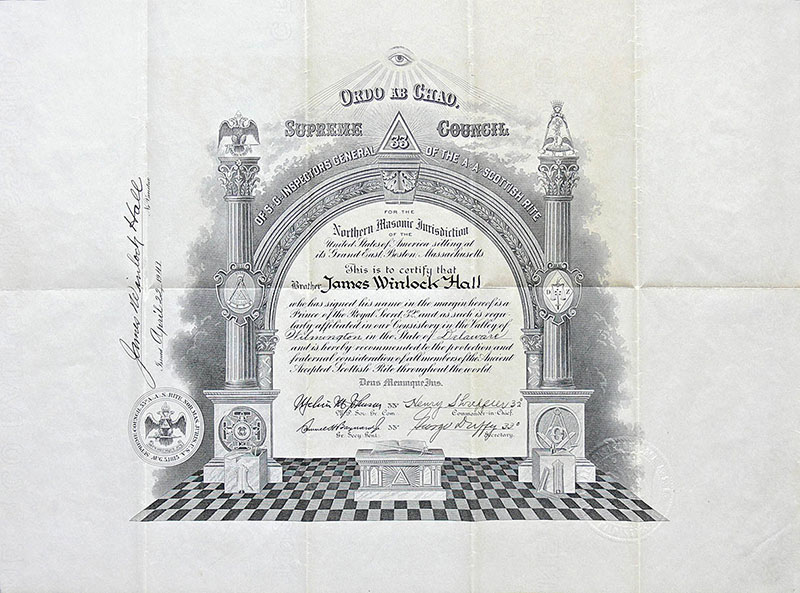 ORDO AB CHAO.
SUPREME COUNCIL
33
OF S. G. INSPECTORS GENERAL OF THE A. A. SCOTTISH RITE
FOR THE
Northern Masonic Jurisdiction
OF THE
United States of America sitting at
its Grand East, Boston, Massachusetts
This is to certify that
Brother James Winlock Hall
who has signed his name in the margin hereof is a
Prince of the Royal Secret 32° and as such is regu
larly affiliated in our Consistory in the Valley of
Wilmington in the State of Delaware
and is hereby recommended to the protection and
fraternal consideration of all members of the Ancient
Accepted Scottish Rite throughout the world
Deus Meumque Jus.
Melvin M. Johnson 33° Henry
Commander-in-Chief.
33° George 33°
Secretary.
James Winlock Hall
Issued April 22,
SUPREME COUNCIL
AUG. 5, 1813